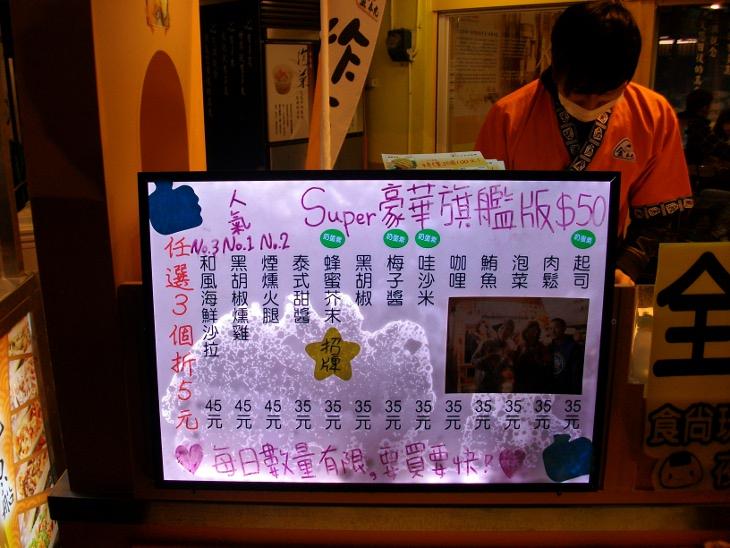 Super豪華旗艦版$50
人氣
No.3 No.1 No.2
任選3個折5元
奶蛋素
奶蛋素
奶蛋素
奶蛋素
和風海鮮沙拉
黑胡椒燻雞
煙燻火腿
泰式甜醬
蜂蜜芥末
黑胡椒
梅子醬
哇沙米
咖哩
鮪魚
泡菜
肉鬆
起司
招牌
45元 45元 45元 35元 35元 35元 35元 35元 35元 35元 35元 35元 35元
每日數量有限,要買要快!
全
食尚玩
夜